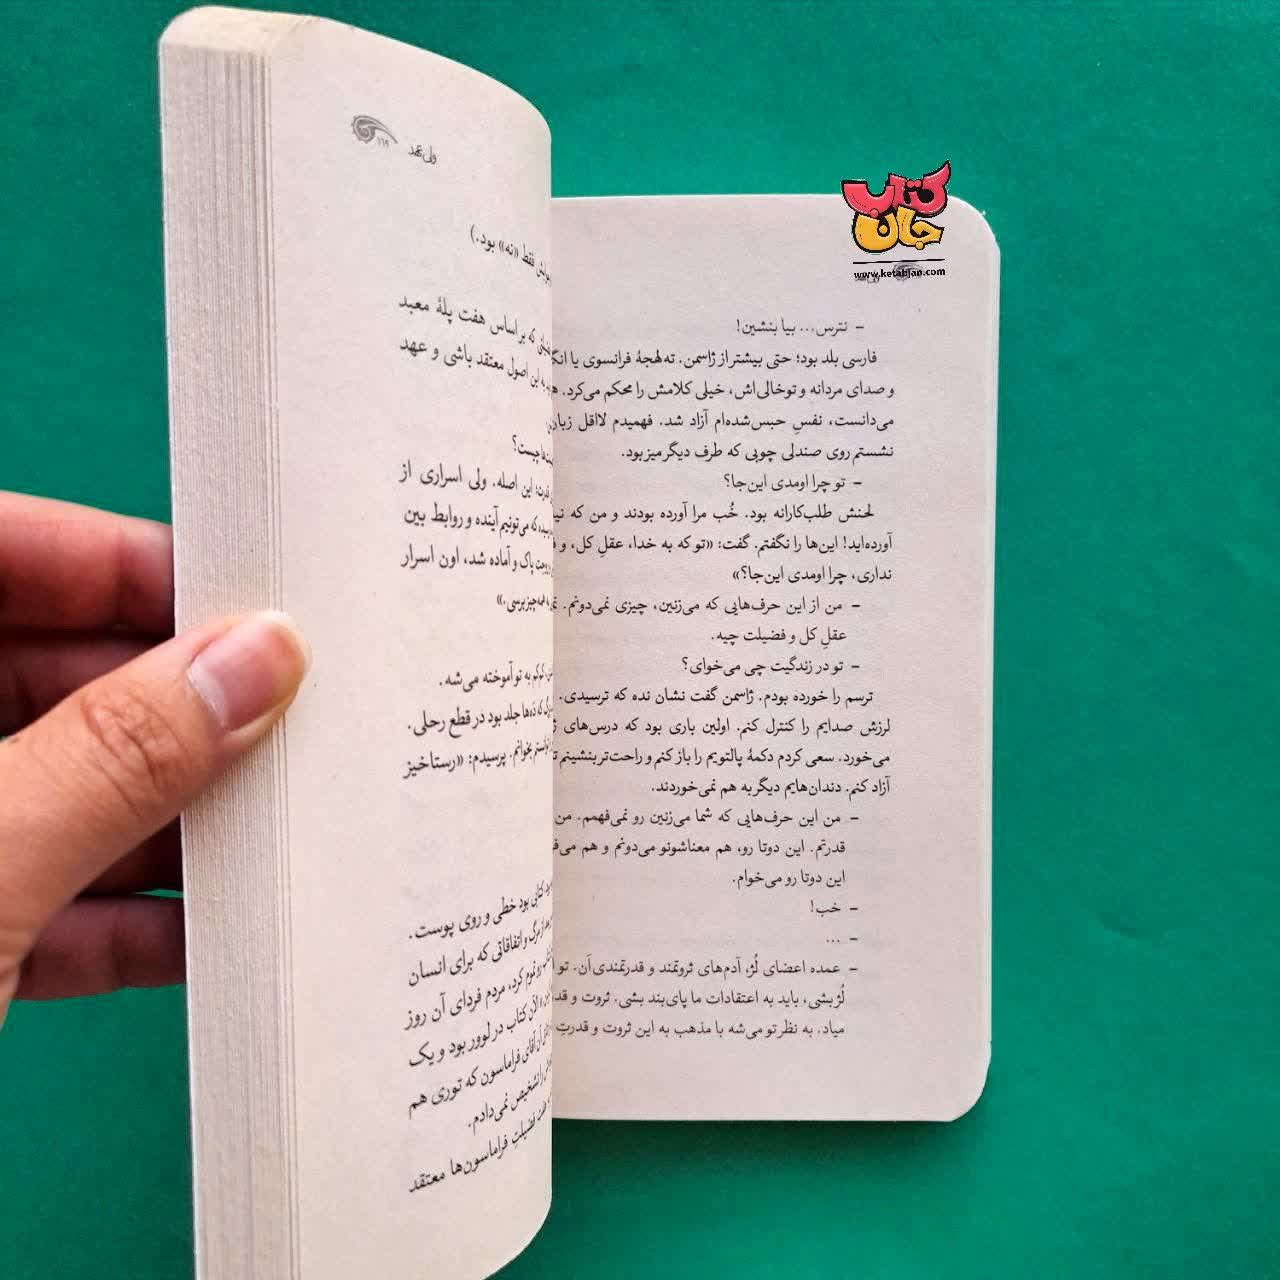 کتاب
جان
www.ketabjan.com
ولی عهد
– نترس... بیا بنشین!
فارسی بلد بود؛ حتی بیشتر از ژاسمن. ته‌لهجهٔ فرانسوی یا
و صدای مردانه و توخالی‌اش، خیلی کلامش را محکم می‌کرد.
می‌دانست، نفسِ حبس‌شده‌ام آزاد شد. فهمیدم لااقل
نشستم روی صندلی چوبی که طرف دیگر میز بود.
– تو چرا اومدی این‌جا؟
لحنش طلب‌کارانه بود. خُب مرا آورده بودند و من که
آورده‌اید! این‌ها را نگفتم. گفت: «تو که به خدا، عقلِ کل، و
نداری، چرا اومدی این‌جا؟»
– من از این حرف‌هایی که می‌زنین، چیزی نمی‌دونم.
عقلِ کل و فضیلت چیه.
– تو در زندگیت چی می‌خوای؟
ترسم را خورده بودم. ژاسمن گفت نشان نده که ترسیدی.
لرزش صدایم را کنترل کنم. اولین باری بود که درس‌های
می‌خورد. سعی کردم دکمهٔ پالتویم را باز کنم و راحت‌تر بنشینم
آزاد کنم. دندان‌هایم دیگر به هم نمی‌خوردند.
– من این حرف‌هایی که شما می‌زنین رو نمی‌فهمم. من
قدرتم. این دوتا رو، هم معناشونو می‌دونم و هم
این دوتا رو می‌خوام.
– خب!
– ...
– عمده اعضای لُژ، آدم‌های ثروتمند و قدرتمندی‌اَن. تو
لُژ بشی، باید به اعتقادات ما پای‌بند بشی. ثروت و
میاد. به نظر تو می‌شه با مذهب به این ثروت و قدرتِ
ولی عهد
۱۶۹
فقط «نه» بود.)
که بر اساس هفت پلهٔ معبد
این اصول معتقد باشی و عهد
چیست؟
این اصله. ولی اسراری از
که می‌تونیم آینده و روابط بین
پاک و آماده شد، اون اسرار
همه‌چیز بپرسی.»
کم‌کم به تو آموخته می‌شه.
که ده‌ها جلد بود در قطع رحلی.
بخوانم. پرسیدم: «رستاخیز
کتابی بود خطی و روی پوست.
از مرگ و اتفاقاتی که برای انسان
رو تموم کرد، مردم فردای آن روز
کتاب در لوور بود و یک
آن آقای فراماسون که توری هم
را تشخیص نمی‌دادم.
فضیلتِ فراماسون‌ها معتقد